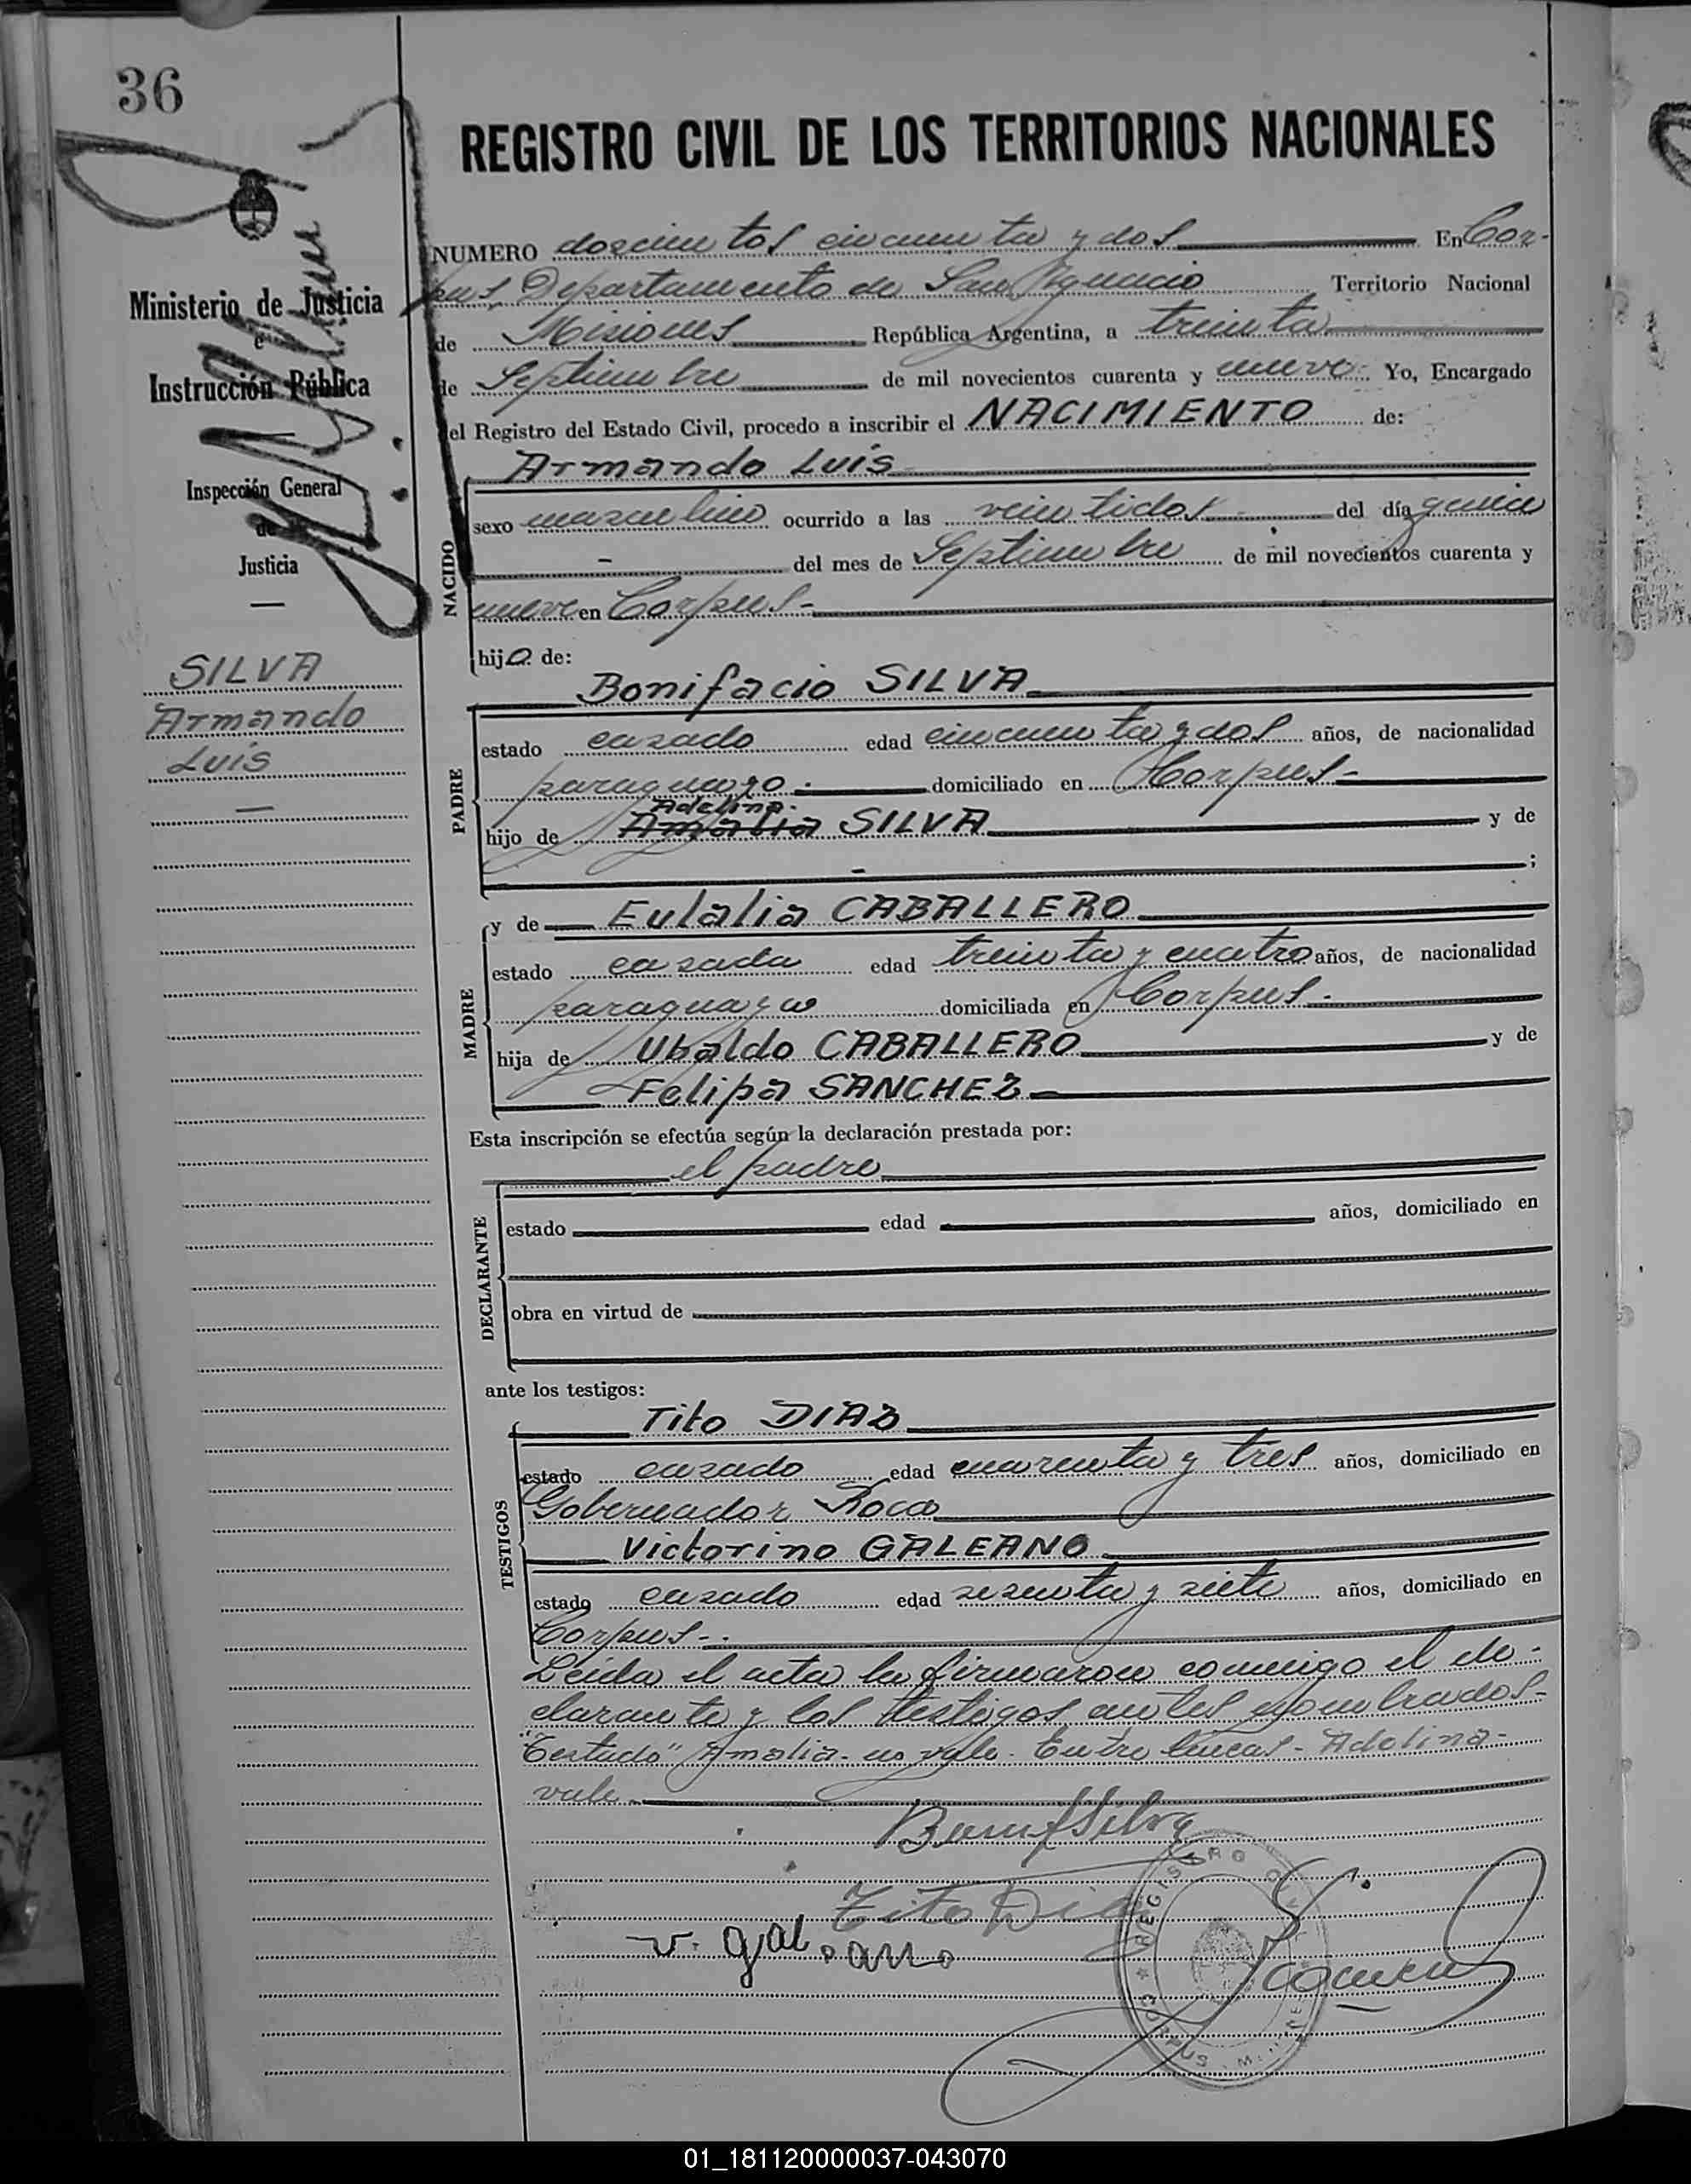 36
REGISTRO CIVIL DE LOS TERRITORIOS NACIONALES
Ministerio de Justicia
e
Instrucción Pública
Inspección General
de
Justicia
SILVA
Armando
Luis
NUMERO doscientos cincuenta y dos En Cor-
pus, Departamento de San Ignacio Territorio Nacional
de Misiones República Argentina, a treinta
de Septiembre de mil novecientos cuarenta y nueve. Yo, Encargado
del Registro del Estado Civil, procedo a inscribir el NACIMIENTO de:
Armando Luis
NACIDO
sexo masculino ocurrido a las veintidos del día quince
- del mes de Septiembre de mil novecientos cuarenta y
nueve en Corpus-
hijo de:
Bonifacio SILVA
PADRE
estado casado edad cincuenta y dos años, de nacionalidad
paraguayo domiciliado en Corpus-
Adelina.
hijo de Amalia SILVA y de
- ;
y de Eulalia CABALLERO
MADRE
estado casada edad treinta y cuatro años, de nacionalidad
paraguaya domiciliada en Corpus.-
hija de Ubaldo CABALLERO y de
Felipa SANCHEZ
Esta inscripción se efectúa según la declaración prestada por:
el padre
DECLARANTE
estado edad años, domiciliado en
obra en virtud de
ante los testigos:
Tito DIAZ
TESTIGOS
estado casado edad cuarenta y tres años, domiciliado en
Gobernador Roca
Victorino GALEANO
estado casado edad sesenta y siete años, domiciliado en
Corpus-.
Leida el acta la firmaron conmigo el de-
clarante y los testigos antes nombrados-
"Testado" Amalia- no vale. Entre lineas- Adelina-
vale.
Bonif Silva
Tito Diaz
v. galeano
REGISTRO
CORPUS
01_181120000037-043070